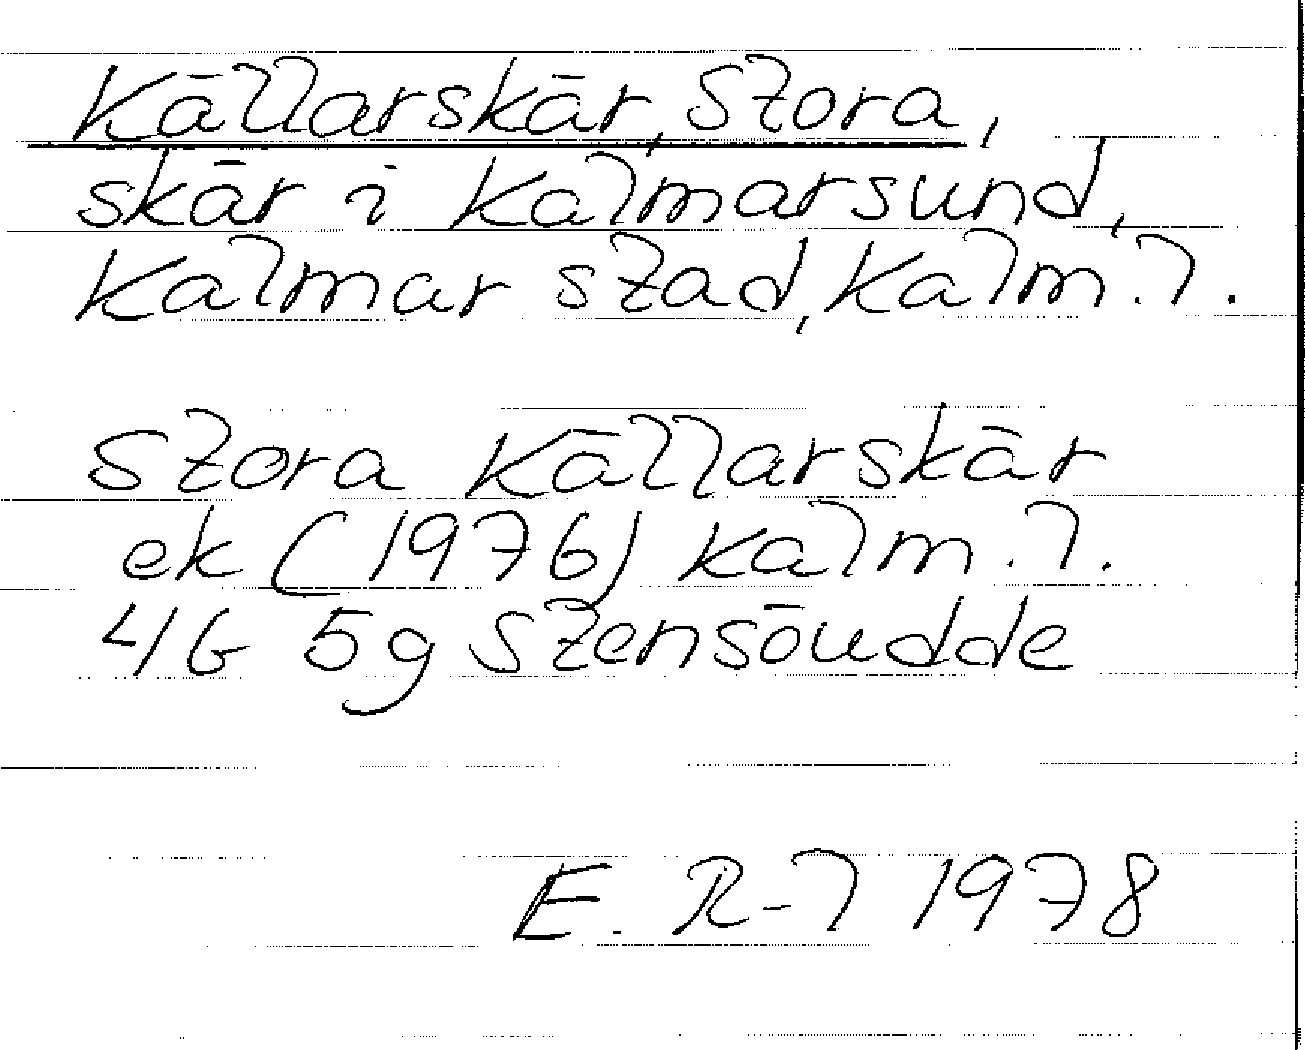 Källarskär, Stora,
skär i Kalmarsund,
Kalmar stad, Kalm. l.
Stora Källarskär
ek (1976) Kalm. l.
4G 5g Stensöudde
E. R-l 1978